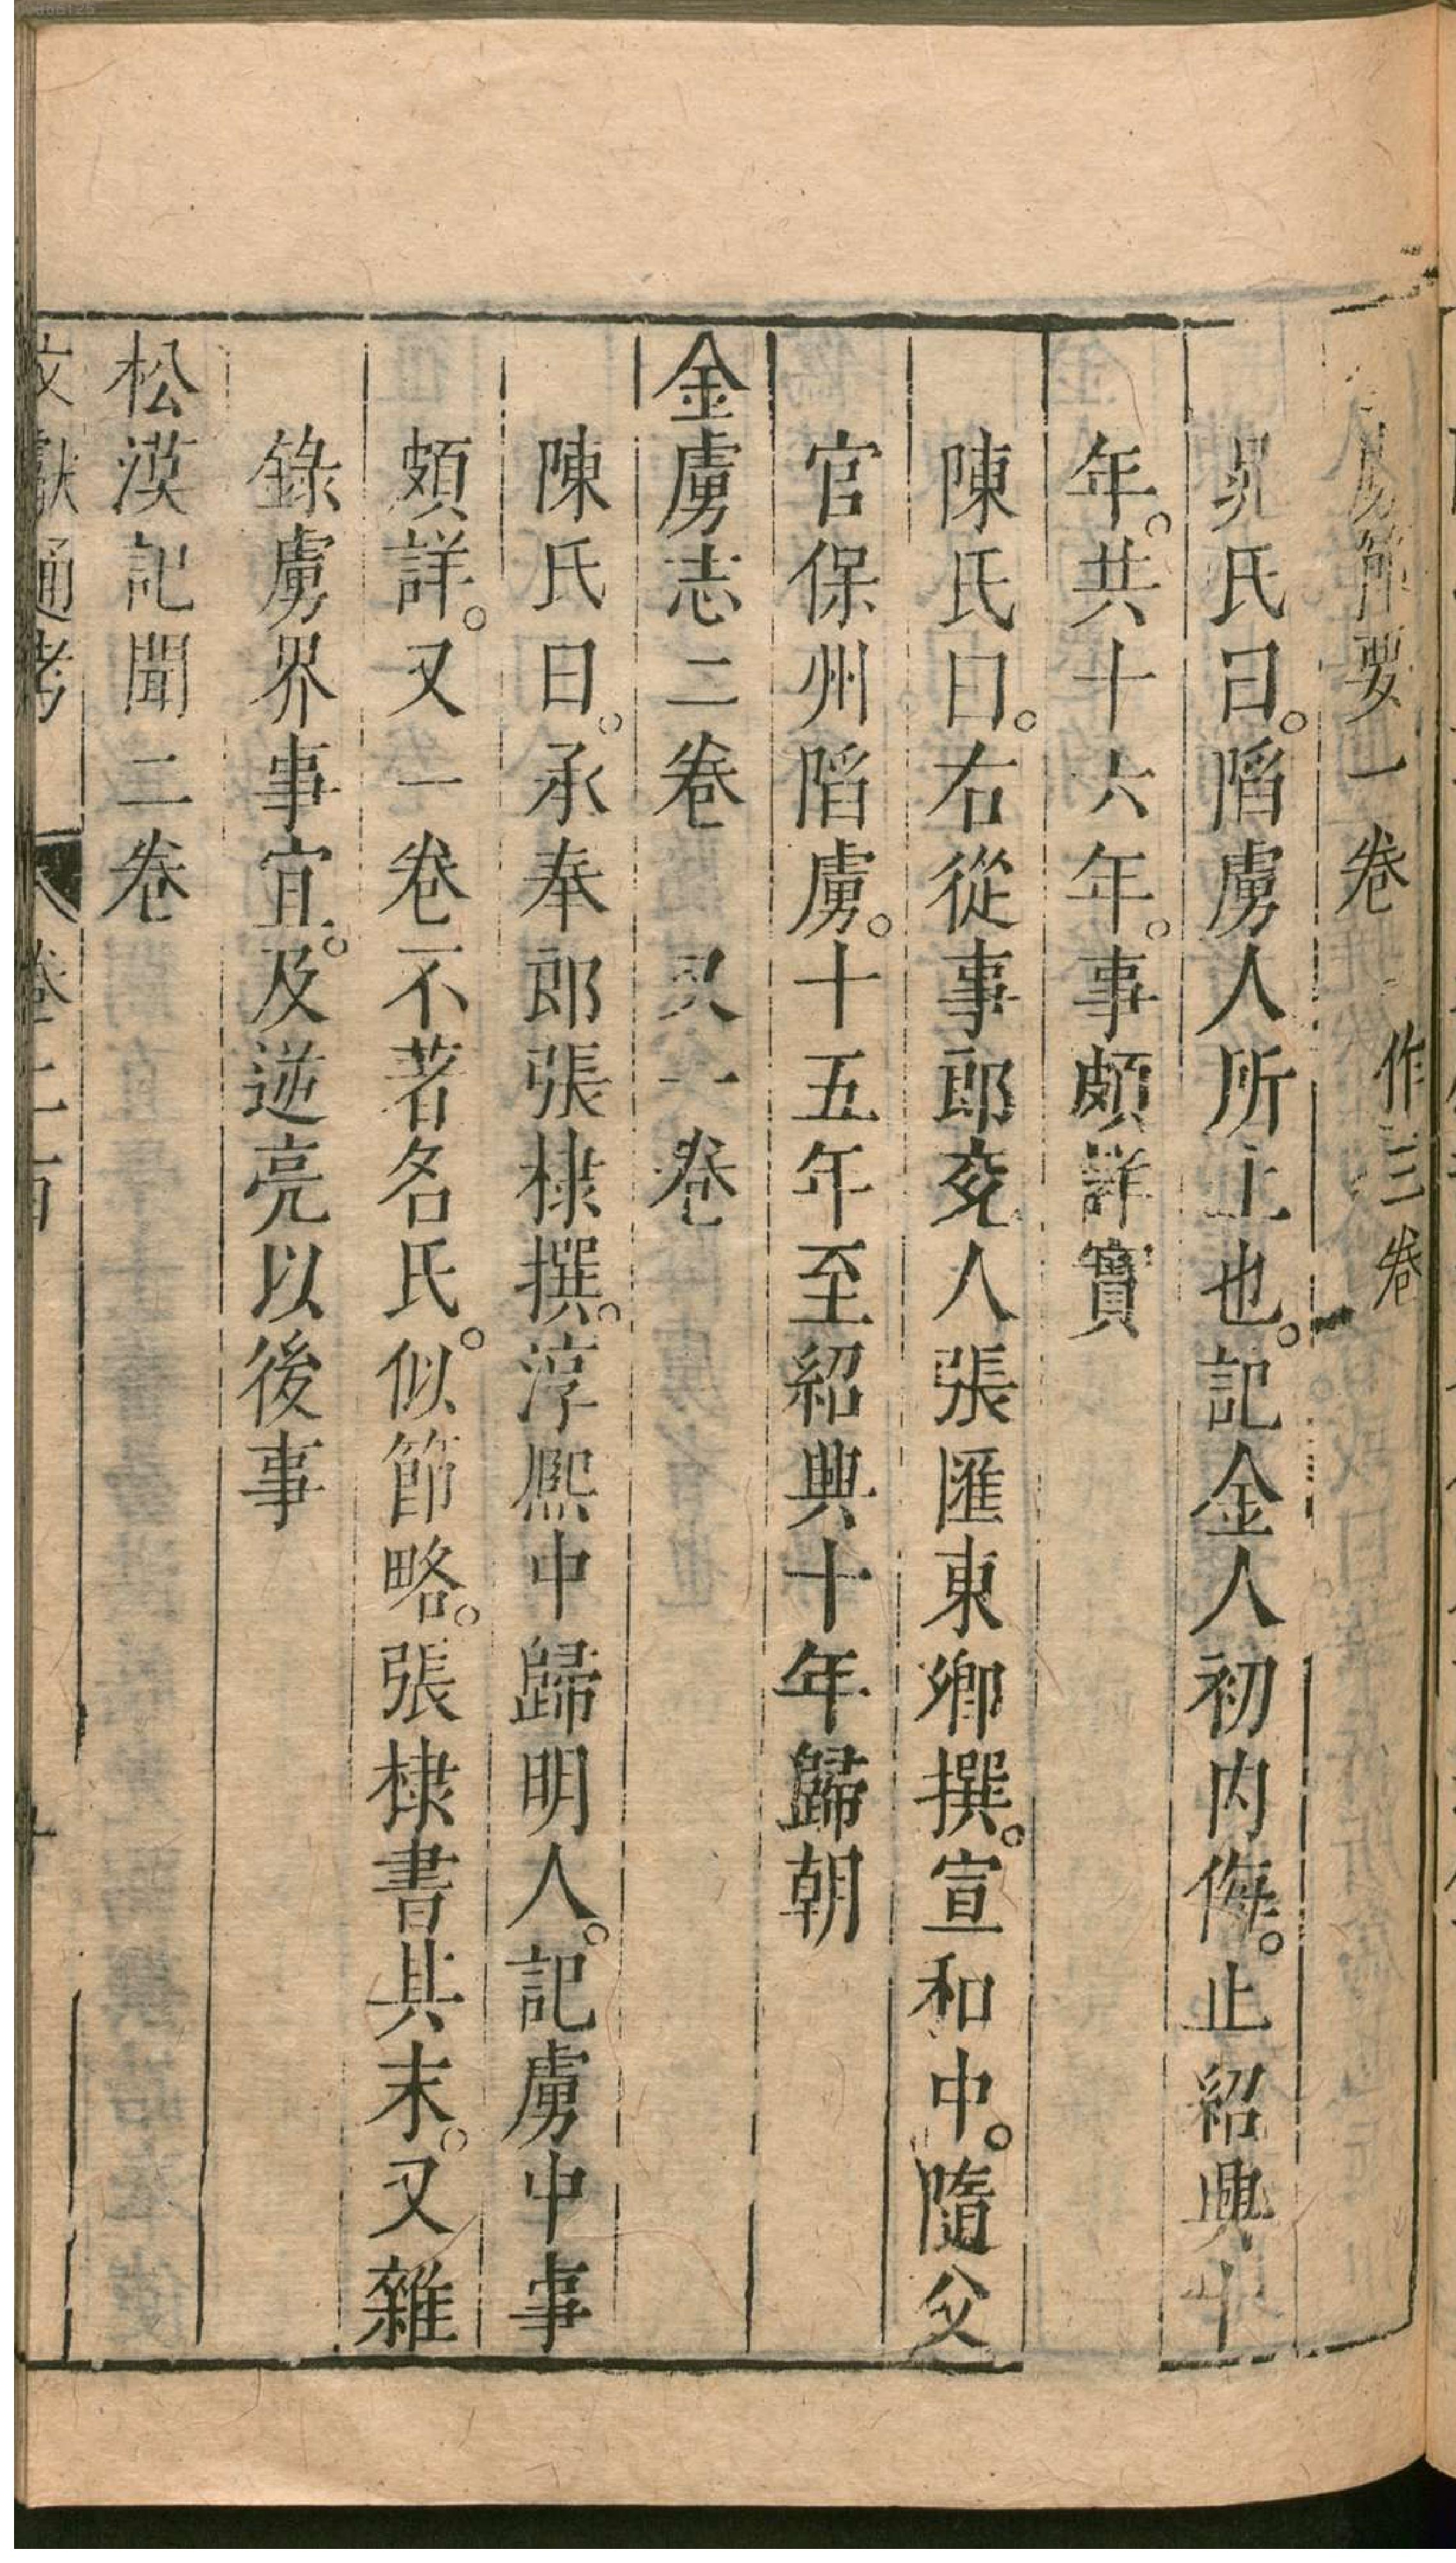 虜節要一卷　作三卷
晁氏曰。陷虜人所上也。記金人初內侮。止紹興十
年。共十六年。事頗詳實
陳氏曰。右從事郎兗人張匯東卿撰。宣和中。隨父
官保州陷虜。十五年至紹興十年歸朝
金虜志二卷　又一卷
陳氏曰。承奉郎張棣撰。淳熙中歸明人。記虜中事
頗詳。又一卷不著名氏。似節略。張棣書其末。又雜
錄虜界事宜。及逆亮以後事
松漠記聞二卷
文獻通考　卷二百